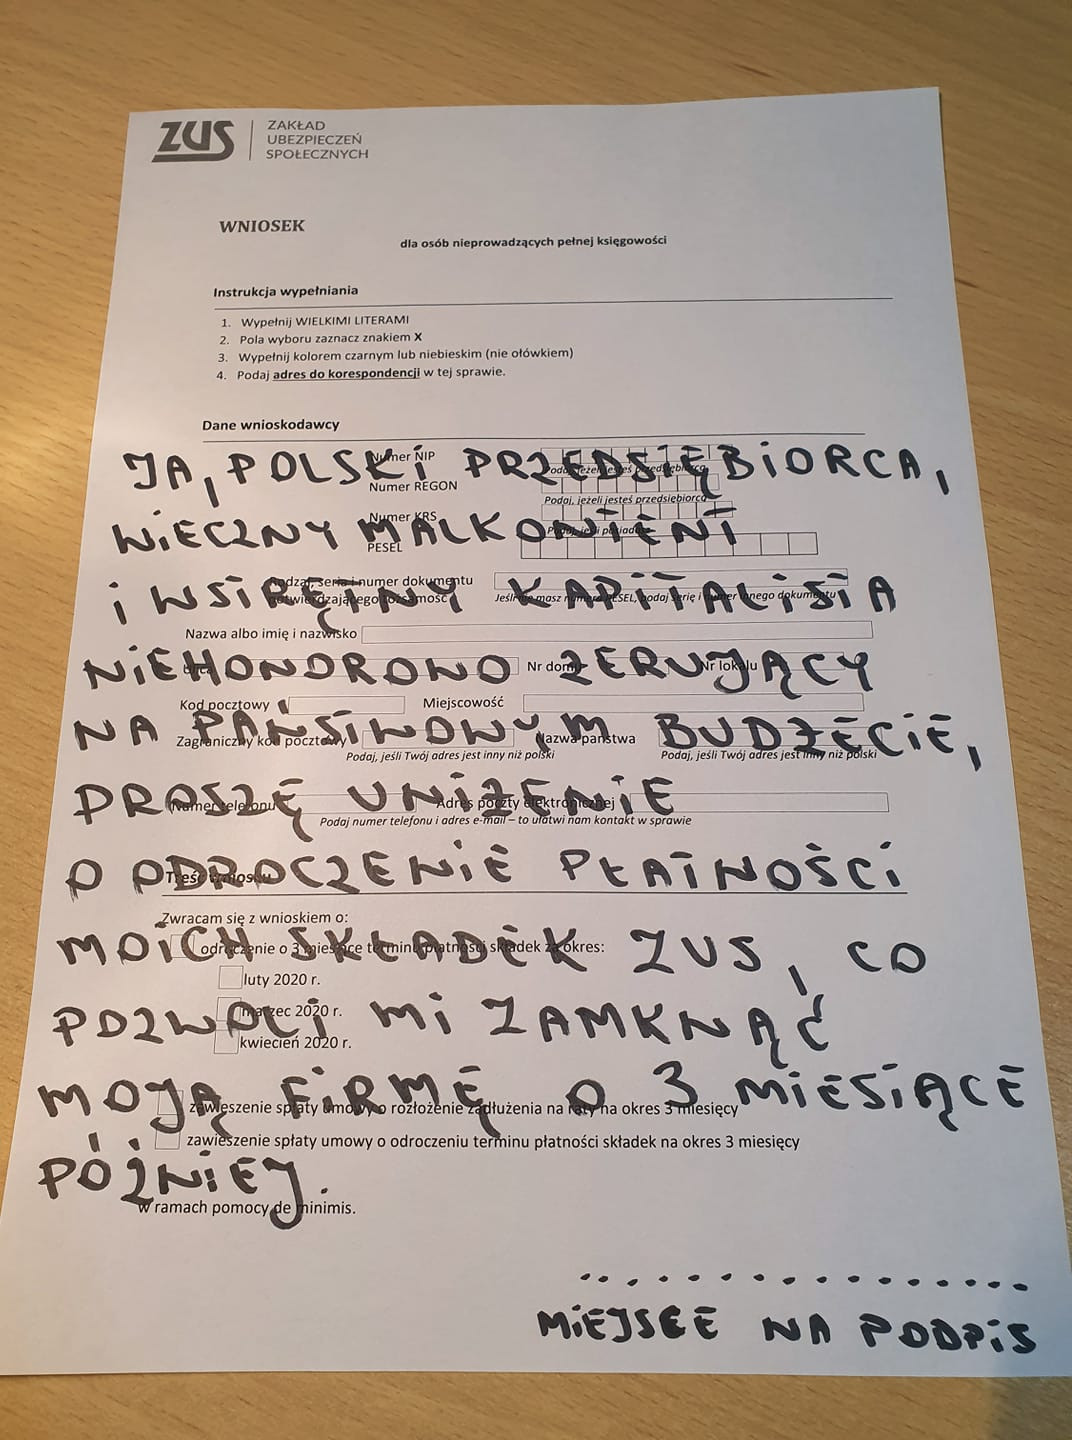 ZUS
ZAKŁAD
UBEZPIECZEŃ
SPOŁECZNYCH
WNIOSEK
dla osób nieprowadzących pełnej księgowości
Instrukcja wypełniania
1. Wypełnij WIELKIMI LITERAMI
2. Pola wyboru zaznacz znakiem X
3. Wypełnij kolorem czarnym lub niebieskim (nie ołówkiem)
4. Podaj adres do korespondencji w tej sprawie.
Dane wnioskodawcy
Numer NIP
JA, POLSKI PRZEDSIĘBIORCA,
Podaj, jeżeli jesteś przedsiębiorcą
Numer REGON
Podaj, jeżeli jesteś przedsiębiorcą
Numer KRS
WIECZNY MALKONTENT
Podaj, jeśli posiadasz
PESEL
Rodzaj, seria i numer dokumentu
potwierdzającego tożsamość
I WSTRĘTNY KAPITALISTA
Jeśli nie masz numeru PESEL, podaj serię i numer innego dokumentu
Nazwa albo imię i nazwisko
NIEHONOROWO ŻERUJĄCY
Ulica Nr domu Nr lokalu
Kod pocztowy Miejscowość
NA PAŃSTWOWYM BUDŻECIE,
Zagraniczny kod pocztowy Nazwa państwa
Podaj, jeśli Twój adres jest inny niż polski Podaj, jeśli Twój adres jest inny niż polski
PROSZĘ UNIŻENIE
Numer telefonu Adres poczty elektronicznej
Podaj numer telefonu i adres e-mail – to ułatwi nam kontakt w sprawie
O ODROCZENIE PŁATNOŚCI
Treść wniosku
Zwracam się z wnioskiem o:
MOICH SKŁADEK ZUS, CO
odroczenie o 3 miesiące terminu płatności składek za okres:
luty 2020 r.
POZWOLI MI ZAMKNĄĆ
marzec 2020 r.
kwiecień 2020 r.
MOJĄ FIRMĘ O 3 MIESIĄCE
zawieszenie spłaty umowy o rozłożenie zadłużenia na raty na okres 3 miesięcy
zawieszenie spłaty umowy o odroczeniu terminu płatności składek na okres 3 miesięcy
PÓŹNIEJ.
w ramach pomocy de minimis.
MIEJSCE NA PODPIS